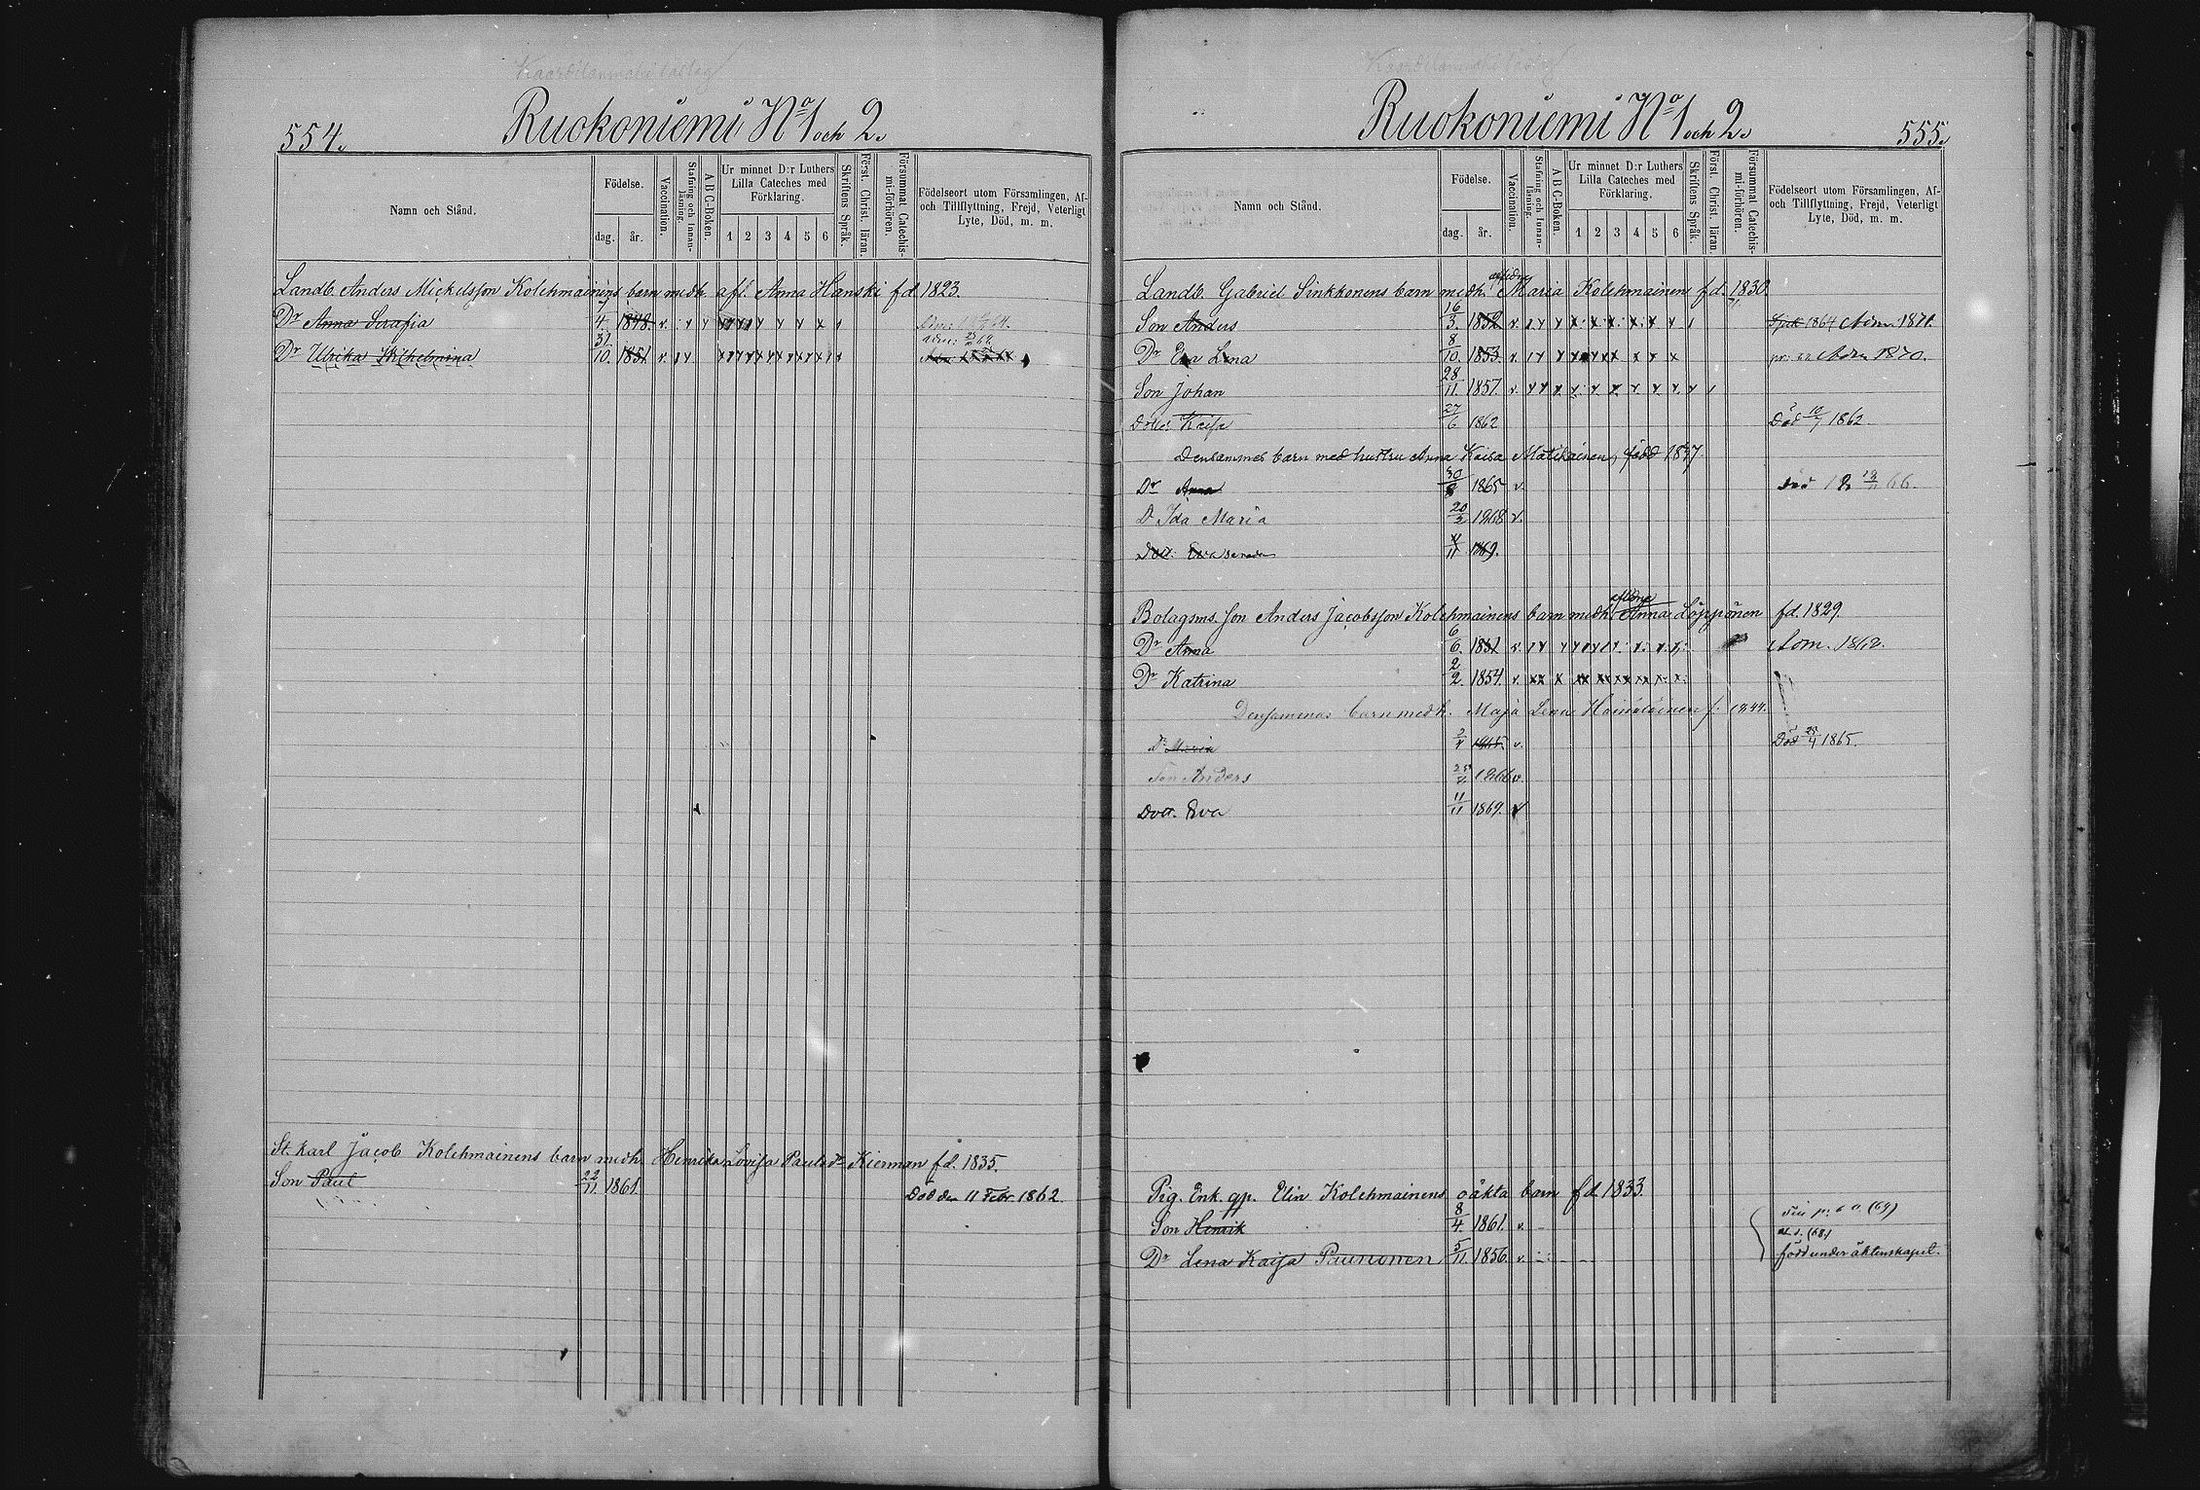 554.
Ruokoniemi No 1 och 2.
Namn och Stånd.
Födelse.
dag. år.
Vaccination.
Stafning och Innan-läsning.
A B C-Boken.
Ur minnet D:r Luthers Lilla Cateches med Förklaring.
1 2 3 4 5 6
Skriftens Språk.
Först. Christ. läran.
Försummat Catechis-mi-förhören.
Födelseort utom Församlingen, Af-
och Tillflyttning, Frejd, Veterligt
Lyte, Död, m. m.
Landb. Anders Mickelsson Kolehmainens barn medh. afl. Anna Hanski fd. 1823.
Dr Anna Serafia 4. 1848. v.
Dr Ulrika Wilhelmina 31/10. 1851. v.
St. Karl Jacob Kolehmainens barn medh. Henrika Lovisa Paulsdr Kierman fd. 1835.
Son Paul 22/11. 1861. Död den 11 Febr. 1862.
Ruokoniemi No 1 och 2.
555.
Namn och Stånd.
Födelse.
dag. år.
Vaccination.
Stafning och Innan-läsning.
A B C-Boken.
Ur minnet D:r Luthers Lilla Cateches med Förklaring.
1 2 3 4 5 6
Skriftens Språk.
Först. Christ. läran.
Försummat Catechis-mi-förhören.
Födelseort utom Församlingen, Af-
och Tillflyttning, Frejd, Veterligt
Lyte, Död, m. m.
Landb. Gabriel Sinkkonens barn medh. Maria Kolehmainen fd. 1830.
Son Anders 16/3. 1852 v. 1864 Adm. 1871.
Dr Eva Lena 8/10. 1853. v. Adm 1870.
Son Johan 28/11. 1857. v.
Dotter Kaisa 27/6 1862 Död 10/7 1862.
Densammes barn med hustru Anna Kaisa Matikainen, född 1837
Dr Anna 30 1865 v. död 66.
D Ida Maria 20/3 1868 v.
Dott. Eva 11 1869.
Bolagsms. son Anders Jacobsson Kolehmainens barn medh. Anna Löppönen fd. 1829.
Dr Anna 6/6. 1851 v. Adm. 1868.
Dr Katrina 2/2. 1854. v.
Densammes barn medh. Maja Lena f: 1844.
Dr Maria 2/4 1865. v. Död 25/4 1865.
Son Anders 1866 v.
Dott. Eva 11/11 1869. v
Pig. Enk. gp. Elin Kolehmainens oäkta barn fd. 1833.
Son Henrik 8/4. 1861. v.
Dr Lena Kaisa Paunonen 5/11. 1856. v. född under äktenskapet.